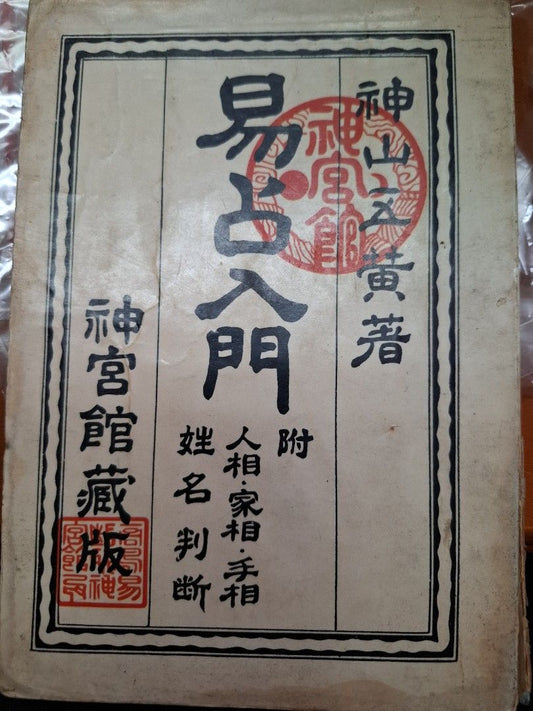 神山五黄著
神宮館
易占入門
附
人相・家相・手相
姓名判断
神宮館蔵版